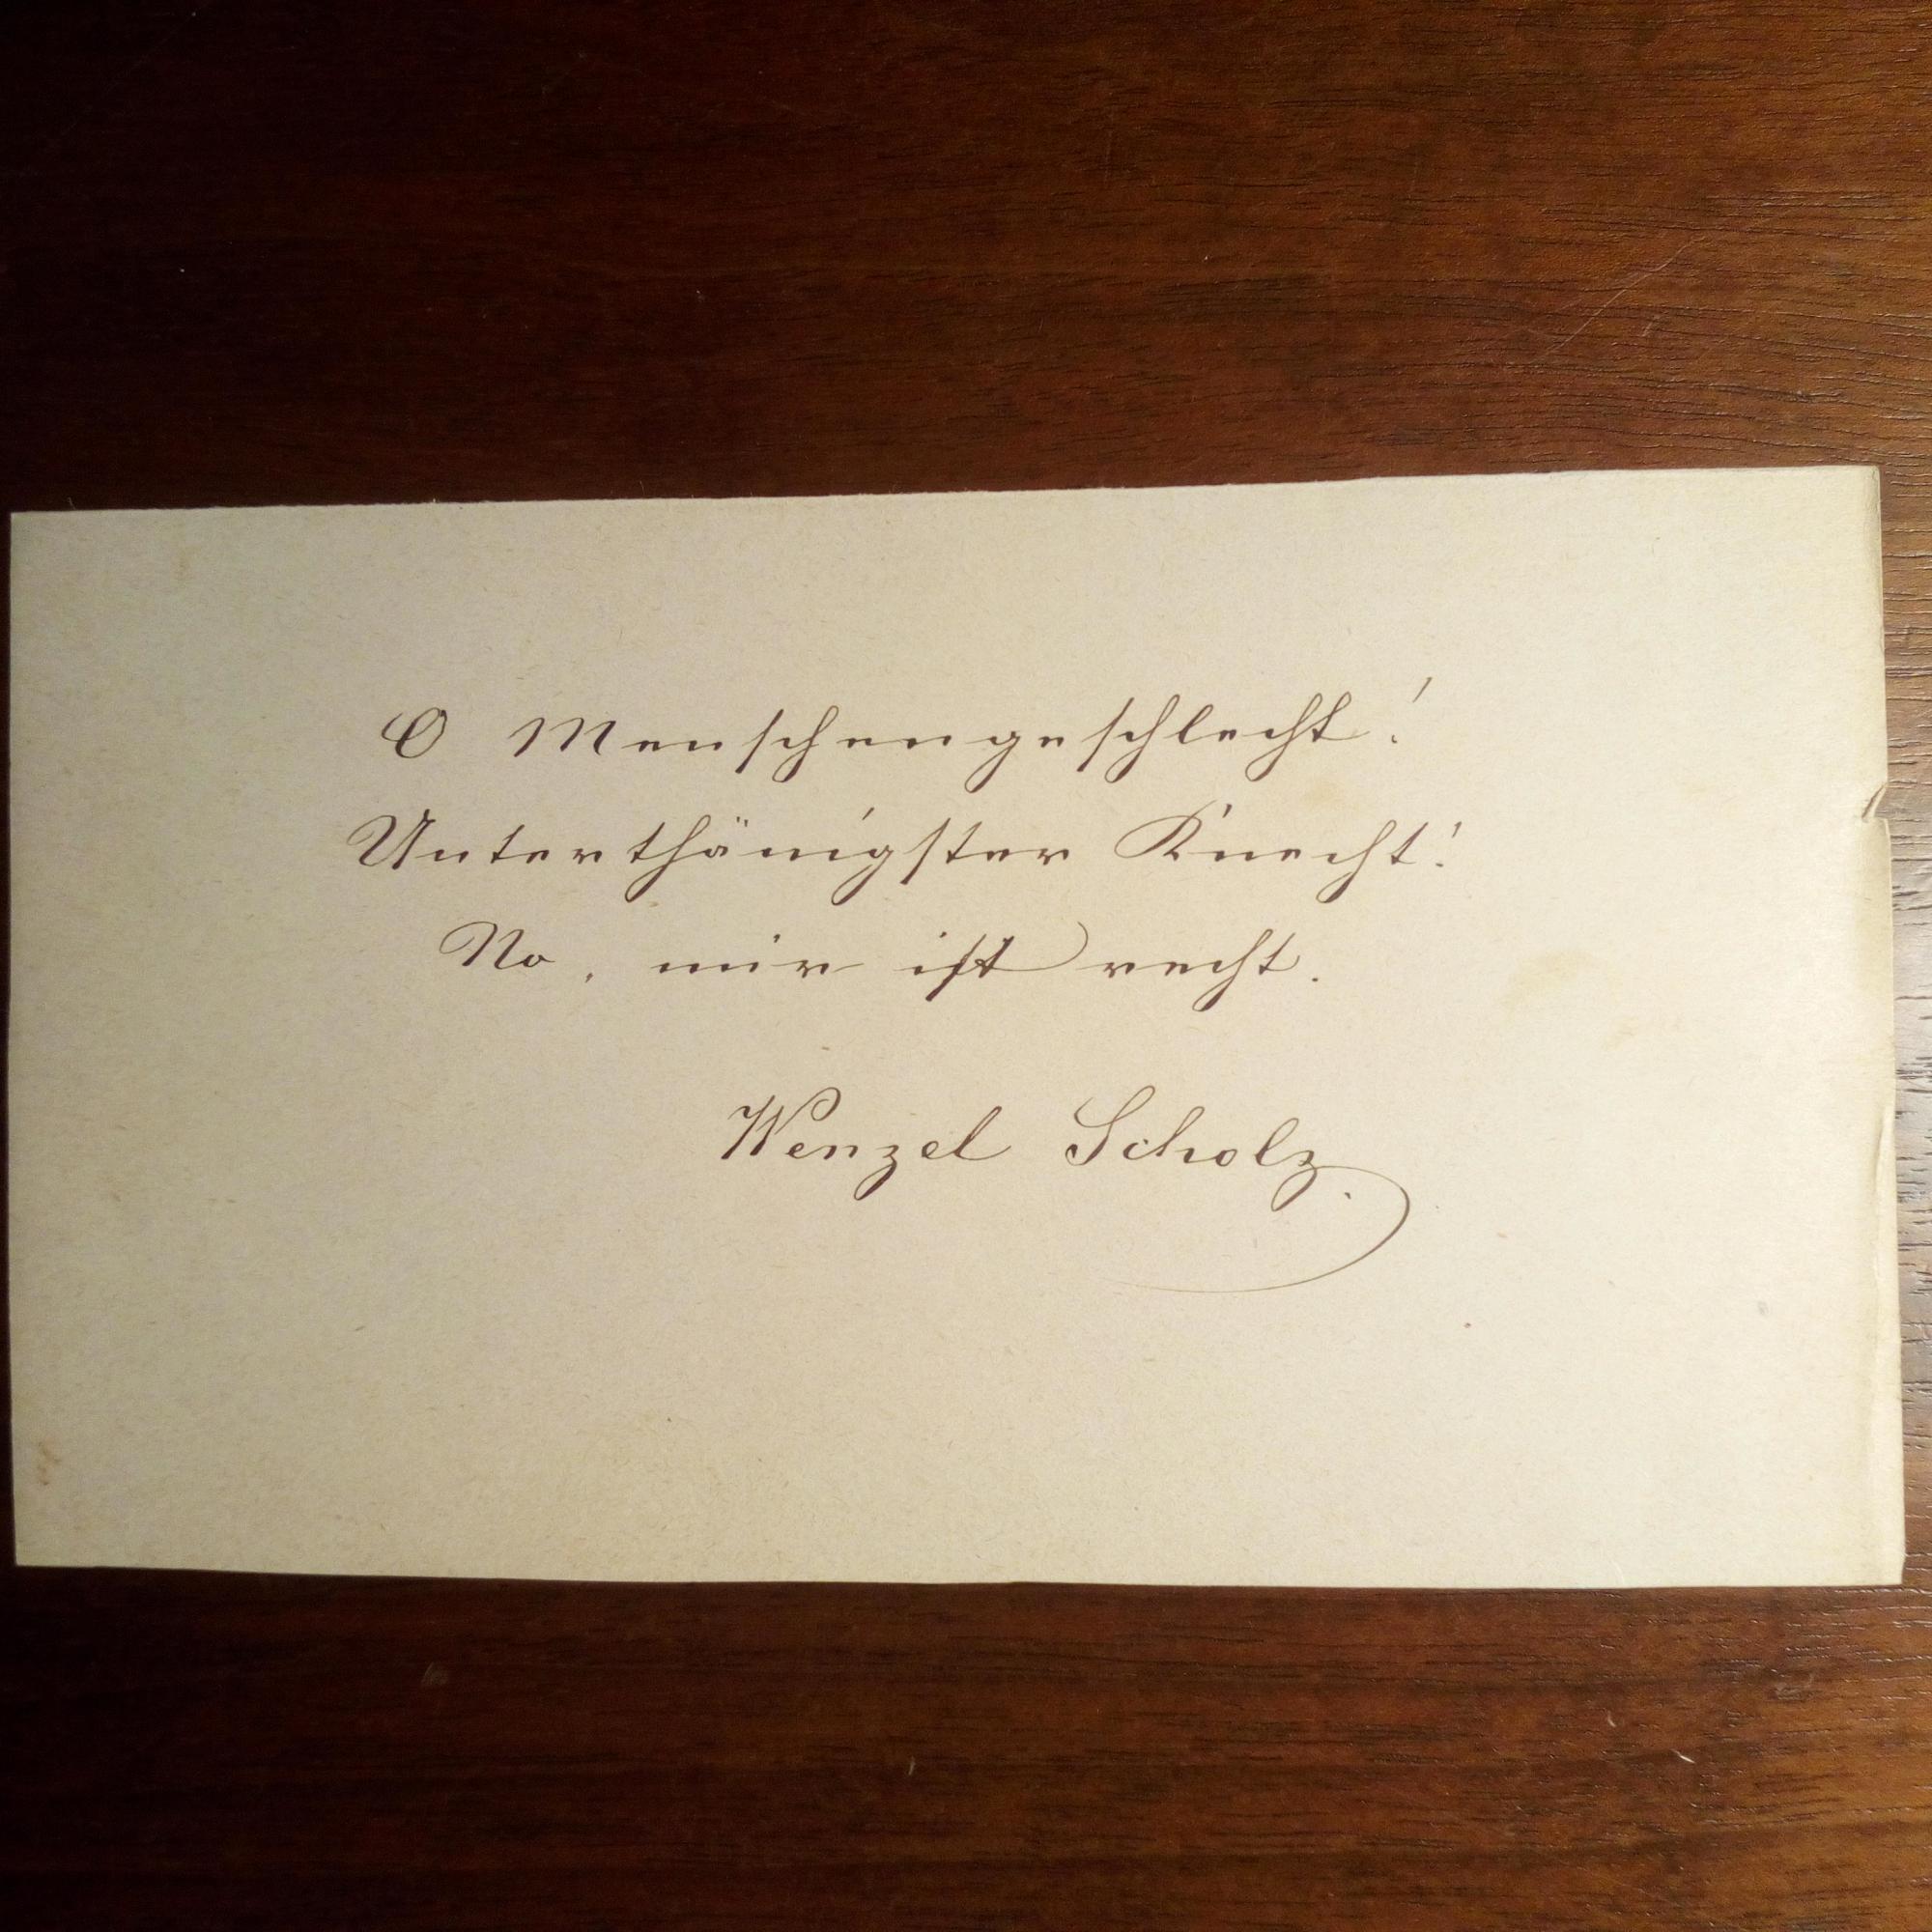 O Menschengeschlecht!
Unterthänigster Knecht!
No, mir ist recht.
Wenzel Scholz.